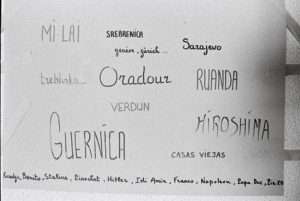 MI-LAI
SREBRENICA
genève, zürich...
Sarajevo
treblinka...
Oradour
RUANDA
VERDUN
HIROSHIMA
GUERNICA
CASAS VIEJAS
Benito, Staline, Pinochet, Hitler, Idi Amin, Franco, Napoleon, Papa Doc, Pie XII